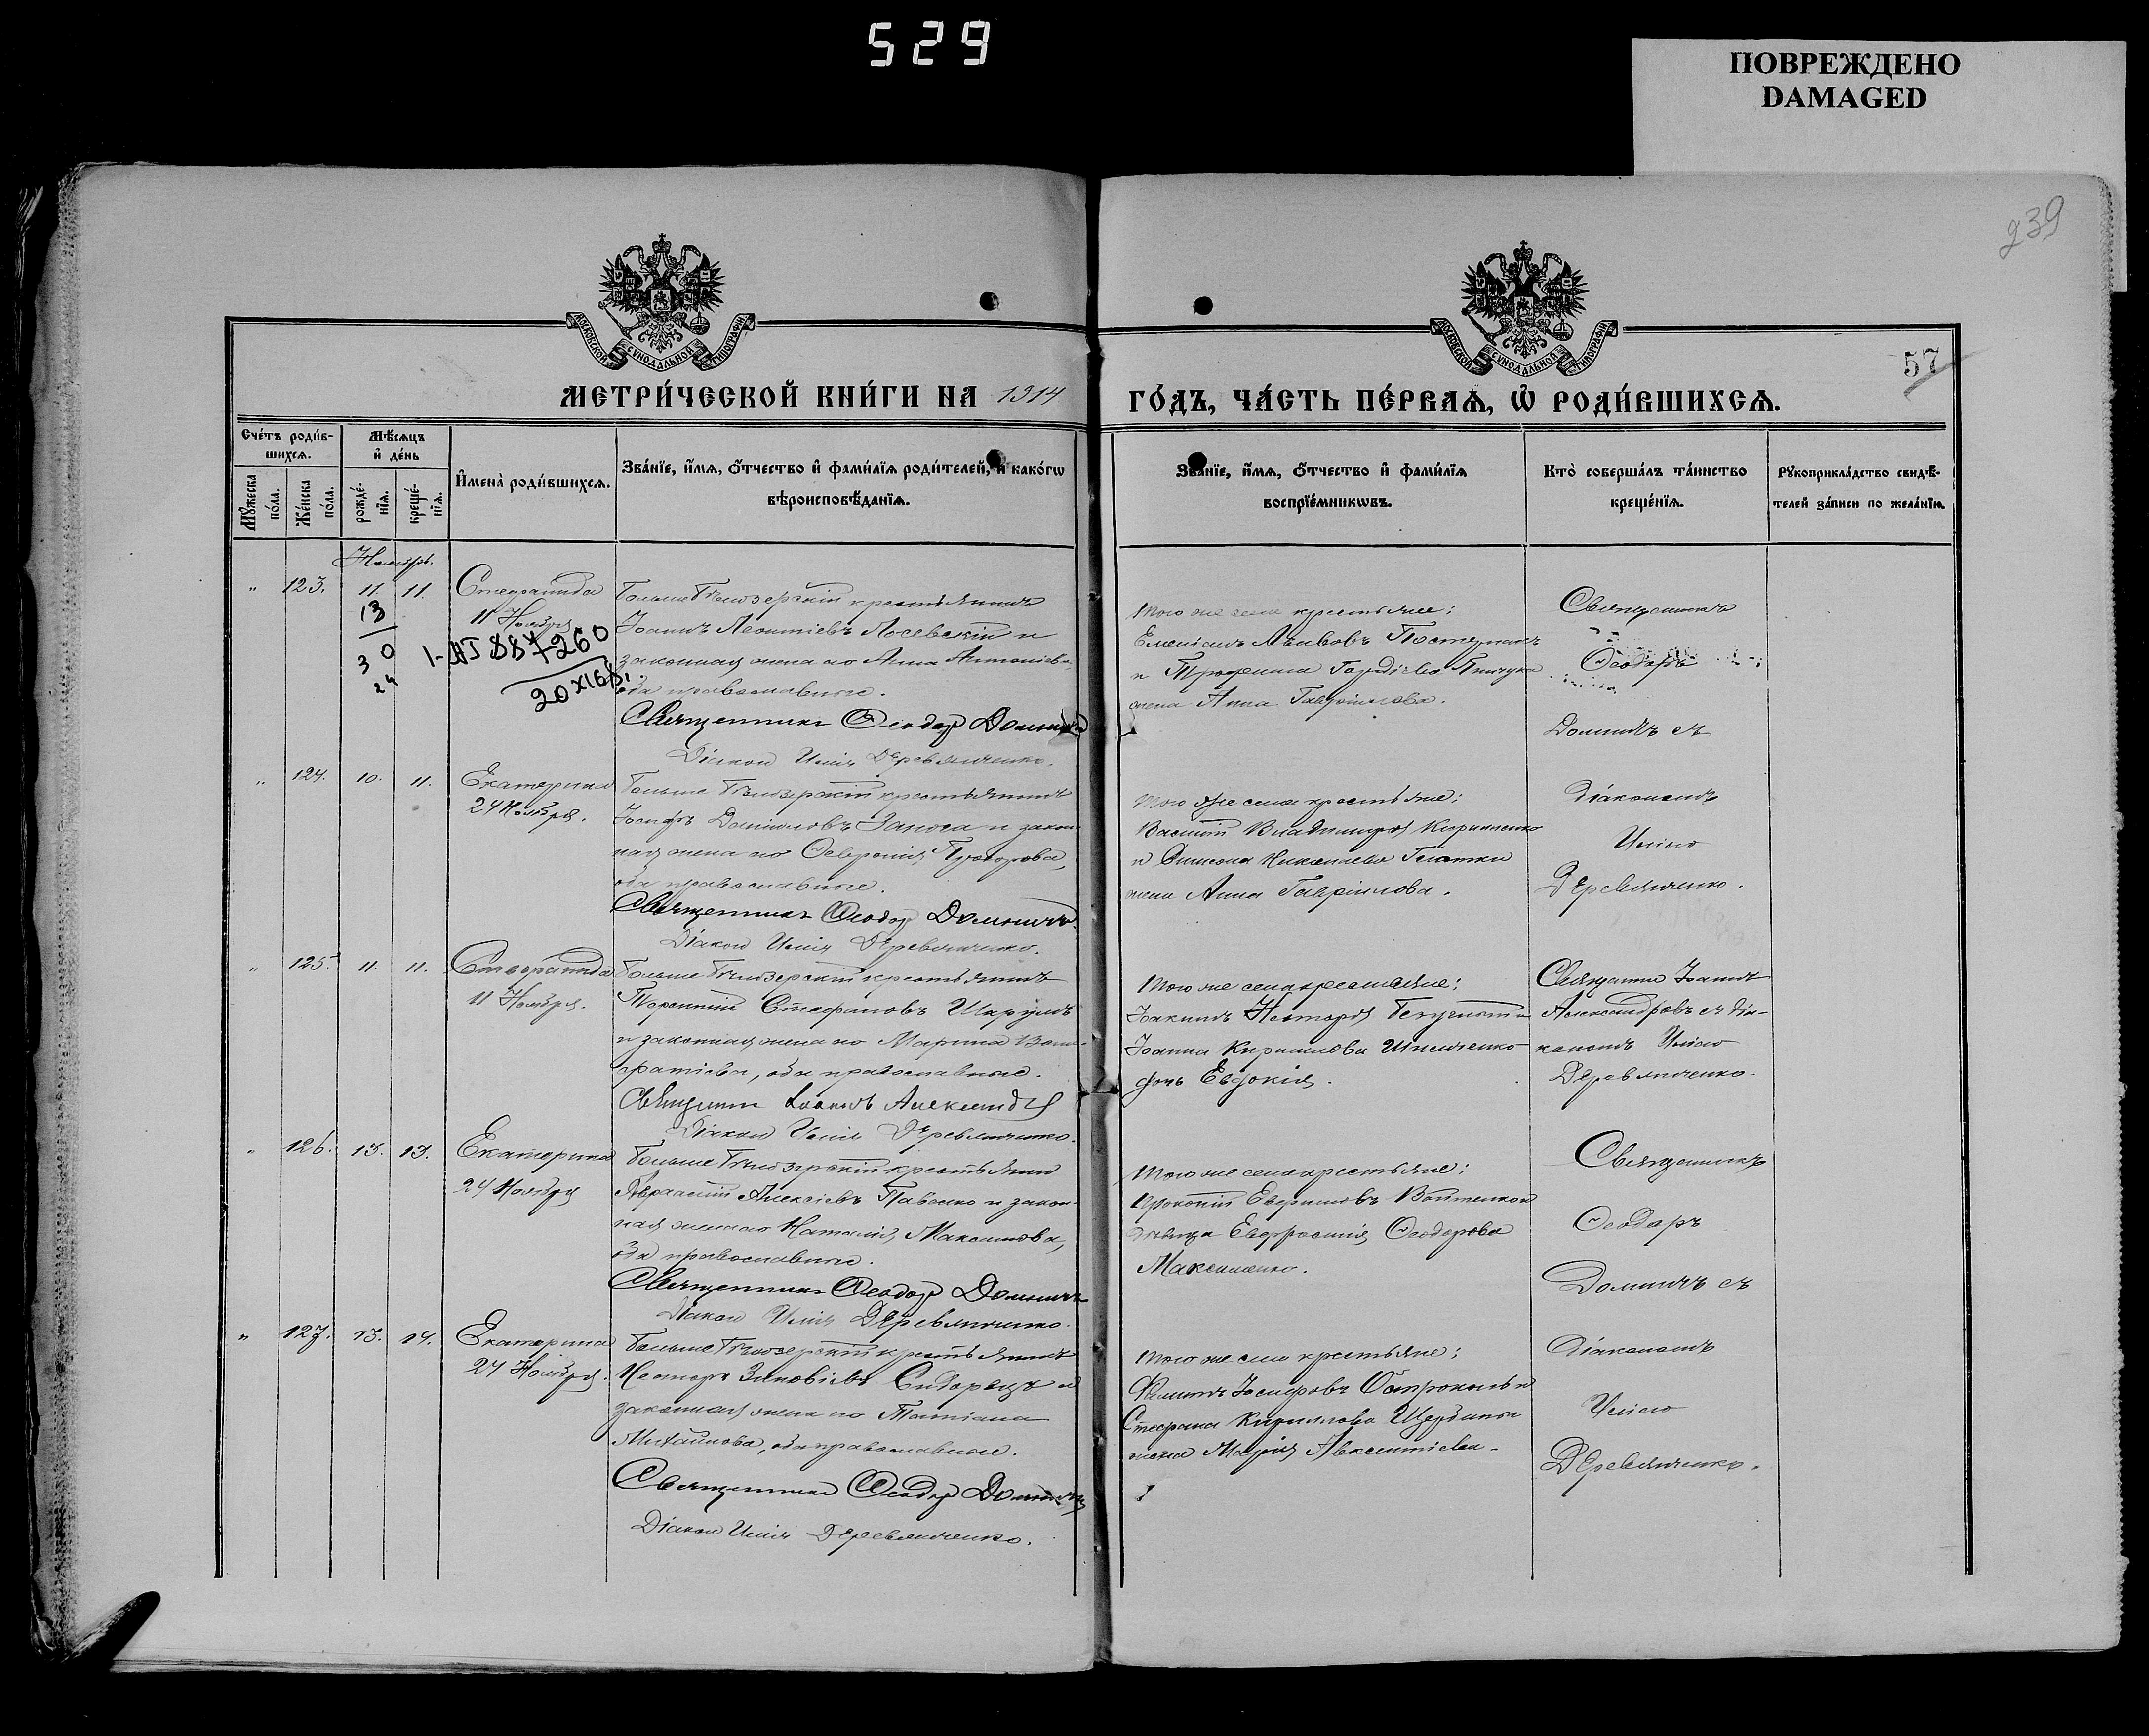 529
ПОВРЕЖДЕНО
DAMAGED
239
57
МОСКОВСКОЙ СѴНОДАЛЬНОЙ ТИПОГРАФІИ
МОСКОВСКОЙ СѴНОДАЛЬНОЙ ТИПОГРАФІИ
МЕТРИ́ЧЕСКОЙ КНИ́ГИ НА 1914
ГО́ДЪ, ЧА́СТЬ ПЕ́РВАѦ, Ѽ РОДИ́ВШИХСѦ.
Сче́тъ роди́в-
шихсѧ.
Мѣ́сѧцъ
и҆ де́нь
Мꙋ́жеска
по́ла.
Же́нска
по́ла.
рожде́-
нїѧ.
креще́-
нїѧ.
И҆мена̀ роди́вшихсѧ.
Зва́нїе, и҆́мѧ, ѻ҆́тчество и҆ фами́лїѧ роди́телей, и҆ како́гѡ
вѣроисповѣ́данїѧ.
Зва́нїе, и҆́мѧ, ѻ҆́тчество и҆ фами́лїѧ
воспрїе́мникѡвъ.
Кто̀ соверша́лъ та́инство
креще́нїѧ.
Рꙋкоприкла́дство свидѣ́-
телей за́писи по жела́нїю.
Ноябрь.
" 123. 11. 11. Стефанида
11 Ноября
13
30
24
887260
Больше Бѣлозерскій крестьянинъ
Іоаннъ Леонтіевъ Лосевскій и
законная жена его Анна Антоніева,
оба православные.
Священникъ Ѳеодоръ Домничъ
Діаконъ Илія Деревянченко.
Того же села крестьяне:
жена Анна Гавріилова.
Священникъ
Ѳеодоръ
Домничъ съ
" 124. 10. 11. Екатерина
24 Ноября.
Больше Бѣлозерскій крестьянинъ
Іосифъ Даніиловъ Запога и закон-
ная жена его Ѳевронія
оба православные.
Священникъ Ѳеодоръ Домничъ
Діаконъ Илія Деревянченко.
Того же села крестьяне:
Василій Владиміровъ Кириленко
и Симеона Николаева
жена Анна Гавріилова.
діакономъ
Иліею
Деревянченко.
" 125. 11. 11. Стефанида
11 Ноября.
Больше Бѣлозерскій крестьянинъ
Терентій Стефановъ Шкрумъ
и законная жена его Марина
оба православные.
Священникъ Іоаннъ Александровъ
Діаконъ Илія Деревянченко.
Того же села крестьяне:
Іоакимъ
Іоанна Кириллова Шпильченко
дочь Евдокія.
Священникъ Іоаннъ
Александровъ съ діа-
кономъ Иліею
Деревянченко.
" 126. 13. 13. Екатерина
24 Ноября
Больше Бѣлозерскій крестьянинъ
Алексіевъ Павенко и закон-
ная жена его Наталія Максимова,
оба православные.
Священникъ Ѳеодоръ Домничъ
Діаконъ Илія Деревянченко.
Того же села крестьяне:
Прокопій
дѣвица Евфросинія Ѳеодорова
Максименко.
Священникъ
Ѳеодоръ
Домничъ съ
" 127. 13. 14. Екатерина
24 Ноября.
Больше Бѣлозерскій крестьянинъ
Несторъ Зиновіевъ Сидорецъ и
законная жена его Татіана
Михайлова, оба православные.
Священникъ Ѳеодоръ Домничъ
Діаконъ Илія Деревянченко.
Того же села крестьяне:
Филиппъ Іосифовъ
Стефана Кириллова Щербины
жена Марія Авксентіева.
діакономъ
Иліею
Деревянченко.